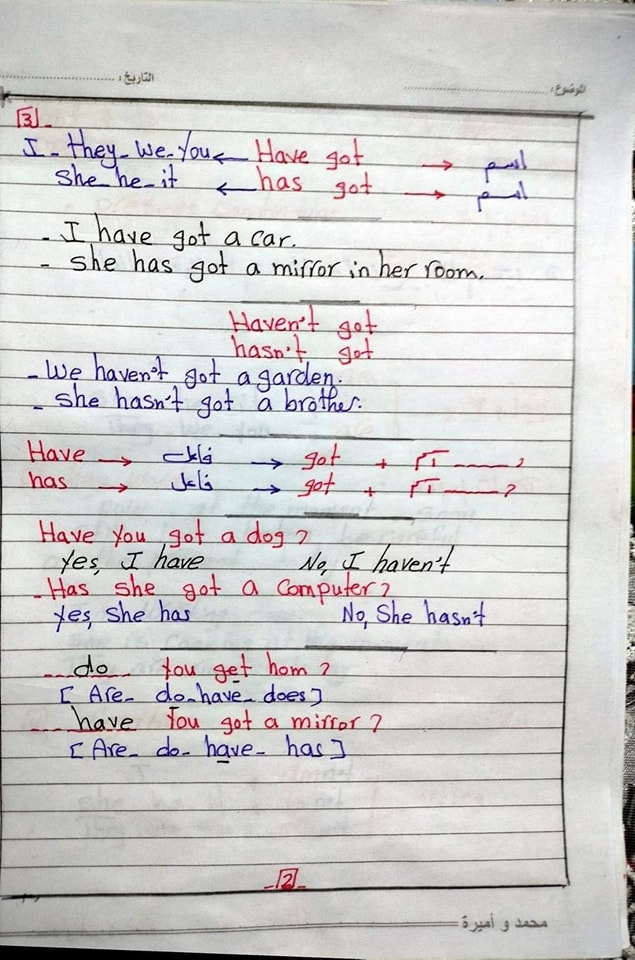 الموضوع: التاريخ:
[3] -
I - they - we - You ← Have got → اسم
She - he - it ← has got → اسم
- I have got a car.
- She has got a mirror in her room.
Haven't got
hasn't got
- We haven't got a garden.
- She hasn't got a brother.
Have → فاعل → got + تكملة ?
has → فاعل → got + تكملة ?
Have You got a dog ?
Yes, I have No, I haven't
- Has she got a Computer ?
Yes, She has No, She hasn't
do You get hom ?
[ Are - do - have - does ]
have You got a mirror ?
[ Are - do - have - has ]
- [2] -
محمد و أميرة